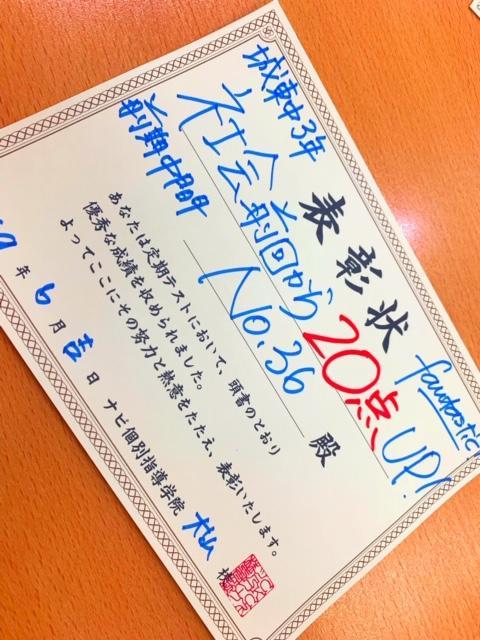 表彰状
fantastic!
城東中3年
社会前回から20点UP!
前期中間
No.36 殿
あなたは定期テストにおいて、頭書のとおり
優秀な成績を収められました。
よってここにその努力と熱意をたたえ、表彰いたします。
年6月吉日 ナビ個別指導学院